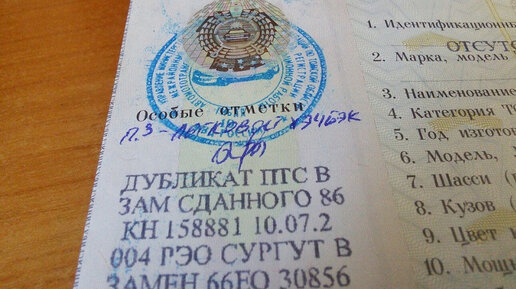 Особые отметки
п.3 - легковой хэчбэк
ДУБЛИКАТ ПТС В
ЗАМ СДАННОГО 86
КН 158881 10.07.2
004 РЭО СУРГУТ В
ЗАМЕН 66ЕО 30856
1. Идентификационны
ОТСУТ
2. Марка, модель
3. Наименование
4. Категория Т
5. Год изготов
6. Модель,
7. Шасси (
8. Кузов (
9. Цвет
10. Мощн